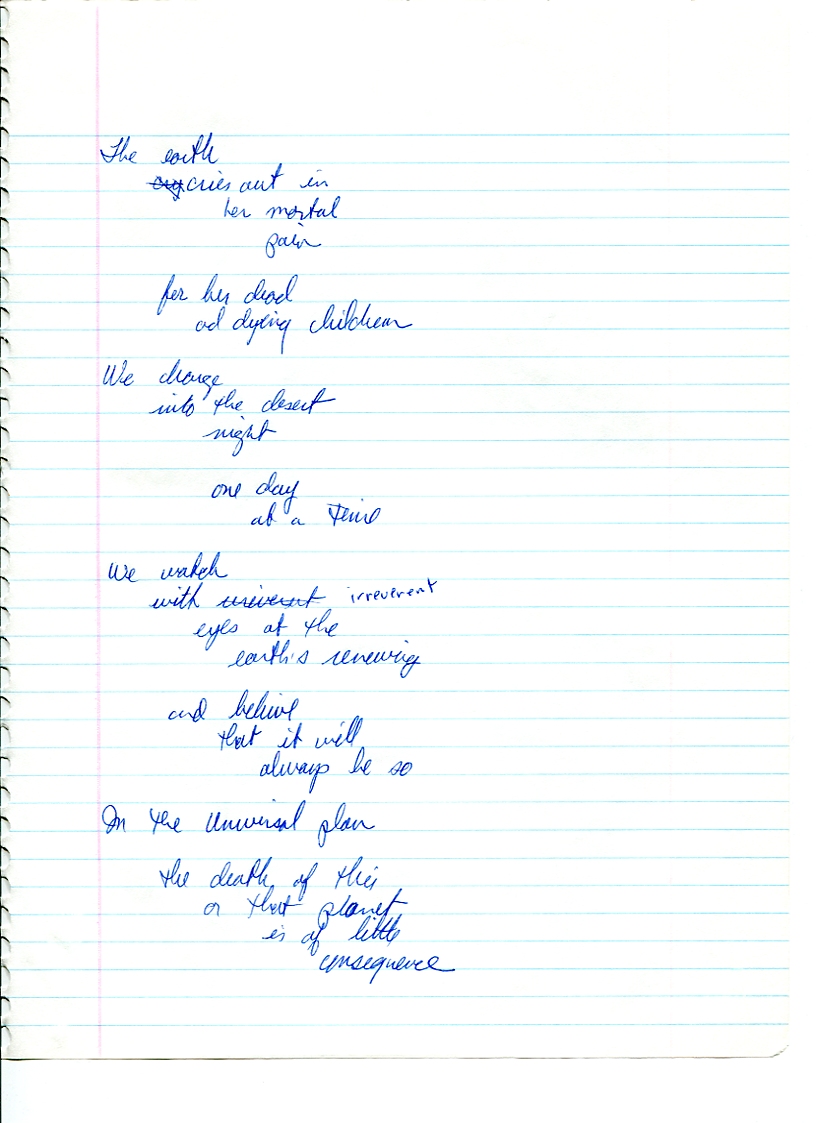 The earth
cry cries out in
her mortal
pain
for her dead
ad dying children
We charge
into the desert
night
one day
at a time
We watch
with irreverent irreverent
eyes at the
earth's renewing
and believe
that it will
always be so
In the Universal plan
the death of this
or that planet
is of little
consequence